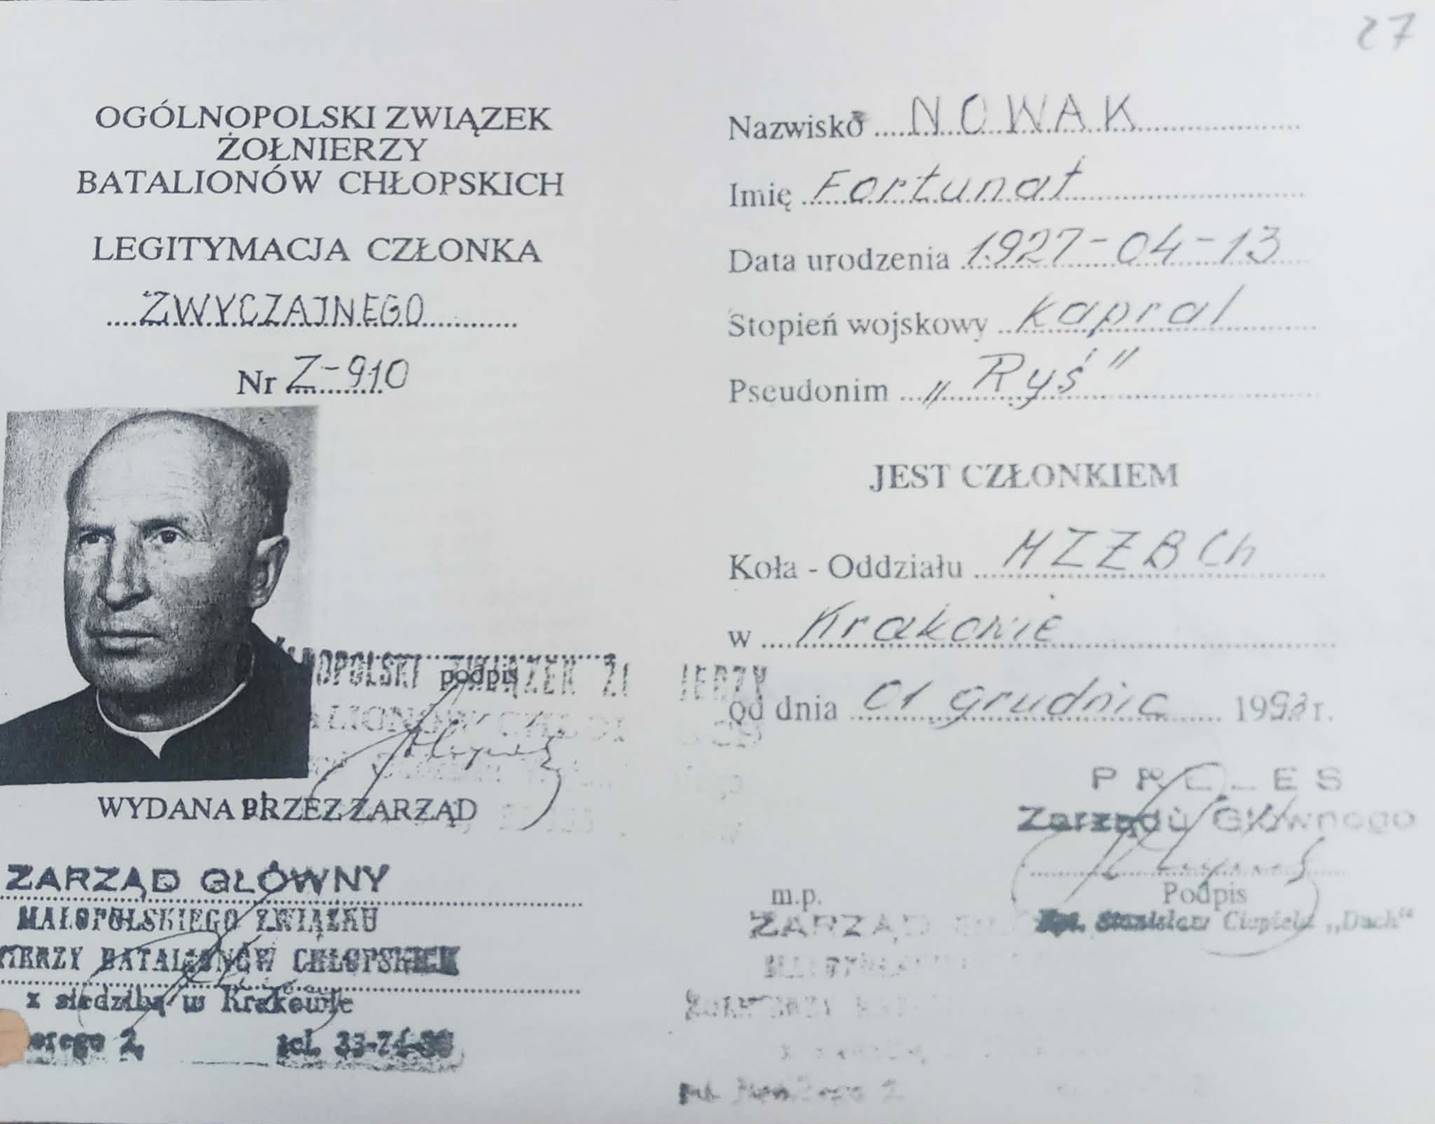 27
OGÓLNOPOLSKI ZWIĄZEK
ŻOŁNIERZY
BATALIONÓW CHŁOPSKICH
LEGITYMACJA CZŁONKA
ZWYCZAJNEGO
Nr Z-910
podpis
WYDANA PRZEZ ZARZĄD
ZARZĄD GŁÓWNY
MAŁOPOLSKIEGO ZWIĄZKU
BATALIONÓW CHŁOPSKICH
z siedzibą w Krakowie
2, tel. 33-74-
Nazwisko NOWAK
Imię Fortunat
Data urodzenia 1927-04-13
Stopień wojskowy kapral
Pseudonim „Ryś"
JEST CZŁONKIEM
Koła - Oddziału MZŻBCh
w Krakowie
od dnia 01 grudnia 199 r.
PREZES
Zarządu Głównego
m.p.
Podpis
Stanisław Ciepiela „Dach"
ZARZĄD